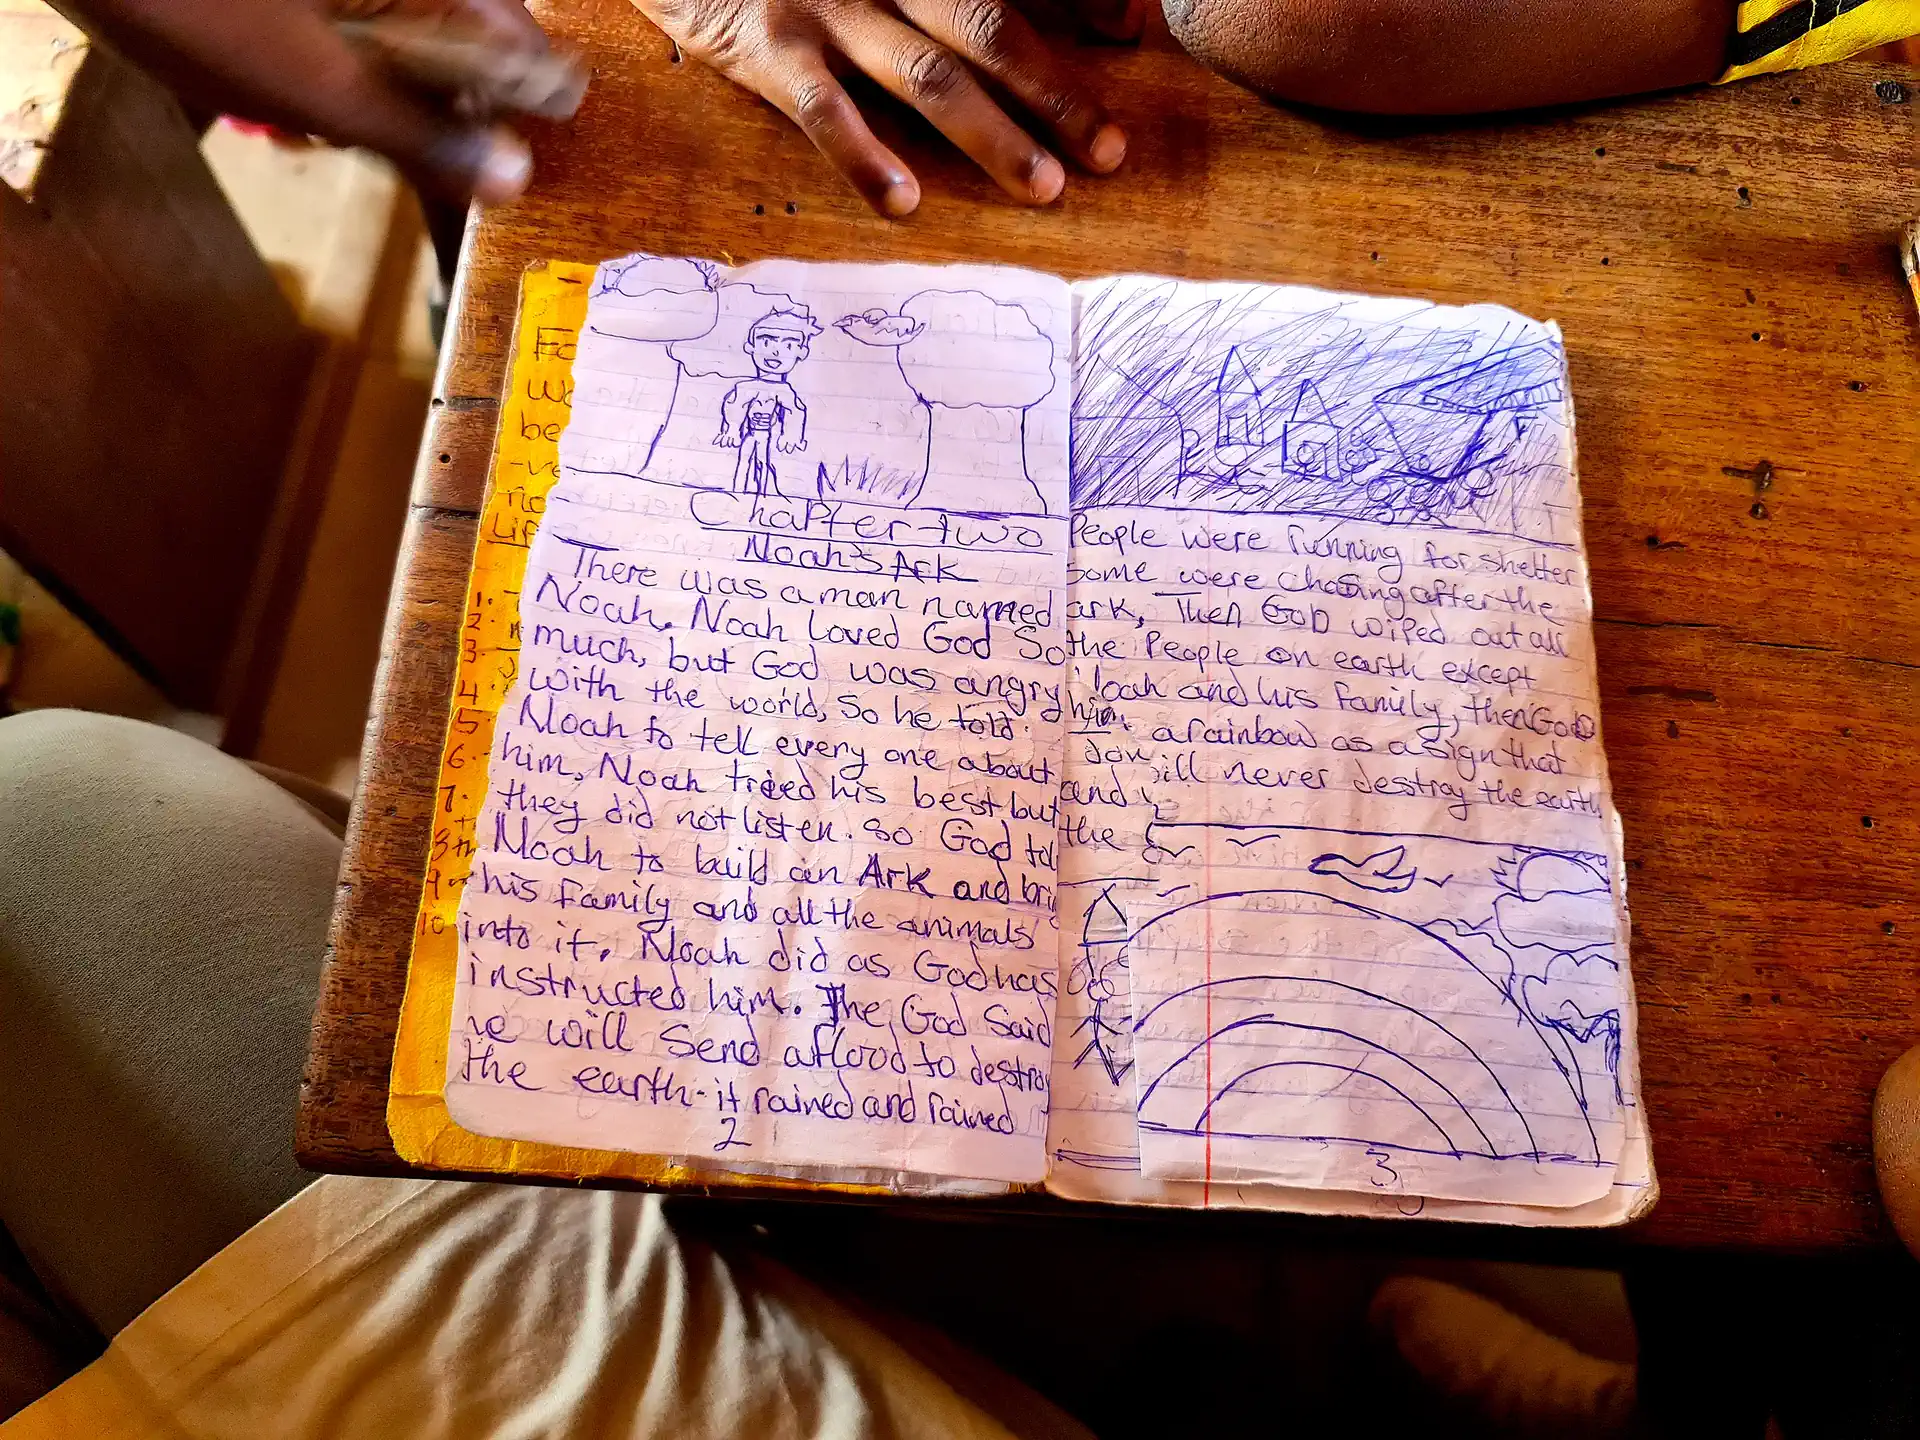 Chapter two
Noah's Ark
There was a man named
Noah. Noah loved God So
much, but God was angry
with the world, So he told
Noah to tell every one about
him, Noah treed his best but
they did not listen. So God
Noah to build an Ark and
his family and all the animals
into it. Noah did as God has
instructed him. The God Said
he will Send a flood to destroy
the earth. it rained and rained
2
People were running for shelter
Some were chasing after the
ark, Then GoD wiped out all
the People on earth except
Noah and his family, then God
a rainbow as a sign that
will never destroy the earth
and
the
3
1.
2.
3.
4.
5.
6.
7.
8
9
10